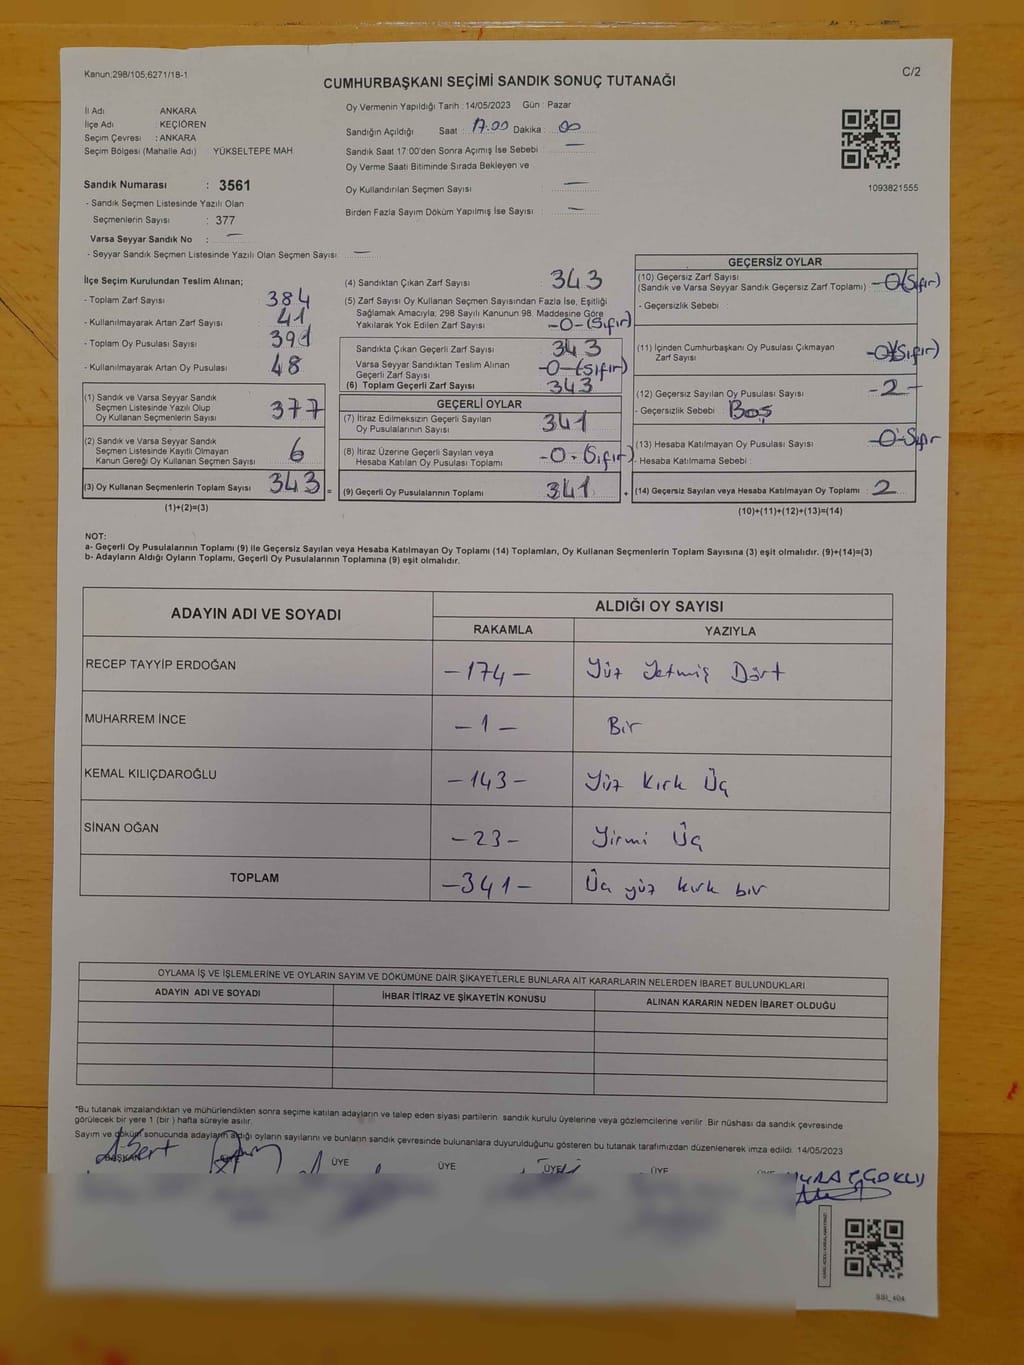 Kanun;298/105;6271/18-1
C/2
CUMHURBAŞKANI SEÇİMİ SANDIK SONUÇ TUTANAĞI
İl Adı ANKARA
İlçe Adı : KEÇİÖREN
Seçim Çevresi : ANKARA
Seçim Bölgesi (Mahalle Adı) YÜKSELTEPE MAH
Sandık Numarası : 3561
- Sandık Seçmen Listesinde Yazılı Olan
Seçmenlerin Sayısı : 377
Varsa Seyyar Sandık No : —
- Seyyar Sandık Seçmen Listesinde Yazılı Olan Seçmen Sayısı —
Oy Vermenin Yapıldığı Tarih : 14/05/2023 Gün : Pazar
Sandığın Açıldığı Saat : 17:00 Dakika : 00
Sandık Saat 17:00'den Sonra Açımış İse Sebebi : —
Oy Verme Saati Bitiminde Sırada Bekleyen ve
Oy Kullandırılan Seçmen Sayısı : —
Birden Fazla Sayım Döküm Yapılmış İse Sayısı : —
1093821555
İlçe Seçim Kurulundan Teslim Alınan;
- Toplam Zarf Sayısı : 384
- Kullanılmayarak Artan Zarf Sayısı : 41
- Toplam Oy Pusulası Sayısı : 391
- Kullanılmayarak Artan Oy Pusulası : 48
(1) Sandık ve Varsa Seyyar Sandık
Seçmen Listesinde Yazılı Olup
Oy Kullanan Seçmenlerin Sayısı 377
(2) Sandık ve Varsa Seyyar Sandık
Seçmen Listesinde Kayıtlı Olmayan
Kanun Gereği Oy Kullanan Seçmen Sayısı 6
(3) Oy Kullanan Seçmenlerin Toplam Sayısı 343 =
(1)+(2)=(3)
(4) Sandıktan Çıkan Zarf Sayısı 343
(5) Zarf Sayısı Oy Kullanan Seçmen Sayısından Fazla İse, Eşitliği
Sağlamak Amacıyla, 298 Sayılı Kanunun 98. Maddesine Göre
Yakılarak Yok Edilen Zarf Sayısı -0-(Sıfır)
Sandıkta Çıkan Geçerli Zarf Sayısı 343
Varsa Seyyar Sandıktan Teslim Alınan
Geçerli Zarf Sayısı -0-(Sıfır)
(6) Toplam Geçerli Zarf Sayısı 343
GEÇERLİ OYLAR
(7) İtiraz Edilmeksizin Geçerli Sayılan
Oy Pusulalarının Sayısı 341
(8) İtiraz Üzerine Geçerli Sayılan veya
Hesaba Katılan Oy Pusulası Toplamı -0-(Sıfır)
(9) Geçerli Oy Pusulalarının Toplamı 341 +
GEÇERSİZ OYLAR
(10) Geçersiz Zarf Sayısı
(Sandık ve Varsa Seyyar Sandık Geçersiz Zarf Toplamı) -0(Sıfır)
- Geçersizlik Sebebi :
(11) İçinden Cumhurbaşkanı Oy Pusulası Çıkmayan
Zarf Sayısı -0(Sıfır)
(12) Geçersiz Sayılan Oy Pusulası Sayısı -2-
- Geçersizlik Sebebi : Boş
(13) Hesaba Katılmayan Oy Pusulası Sayısı -0-Sıfır
- Hesaba Katılmama Sebebi :
(14) Geçersiz Sayılan veya Hesaba Katılmayan Oy Toplamı 2
(10)+(11)+(12)+(13)=(14)
NOT:
a- Geçerli Oy Pusulalarının Toplamı (9) ile Geçersiz Sayılan veya Hesaba Katılmayan Oy Toplamı (14) Toplamları, Oy Kullanan Seçmenlerin Toplam Sayısına (3) eşit olmalıdır. (9)+(14)=(3)
b- Adayların Aldığı Oyların Toplamı, Geçerli Oy Pusulalarının Toplamına (9) eşit olmalıdır.
ADAYIN ADI VE SOYADI ALDIĞI OY SAYISI
RAKAMLA YAZIYLA
RECEP TAYYİP ERDOĞAN -174- Yüz Yetmiş Dört
MUHARREM İNCE -1- Bir
KEMAL KILIÇDAROĞLU -143- Yüz Kırk Üç
SİNAN OĞAN -23- Yirmi Üç
TOPLAM -341- Üç yüz kırk bir
OYLAMA İŞ VE İŞLEMLERİNE VE OYLARIN SAYIM VE DÖKÜMÜNE DAİR ŞİKAYETLERLE BUNLARA AİT KARARLARIN NELERDEN İBARET BULUNDUKLARI
ADAYIN ADI VE SOYADI İHBAR İTİRAZ VE ŞİKAYETİN KONUSU ALINAN KARARIN NEDEN İBARET OLDUĞU
*Bu tutanak imzalandıktan ve mühürlendikten sonra seçime katılan adayların ve talep eden siyasi partilerin sandık kurulu üyelerine veya gözlemcilerine verilir. Bir nüshası da sandık çevresinde
görülecek bir yere 1 (bir) hafta süreyle asılır.
Sayım ve döküm sonucunda adayların aldığı oyların sayılarını ve bunların sandık çevresinde bulunanlara duyurulduğunu gösteren bu tutanak tarafımızdan düzenlenerek imza edildi. 14/05/2023
BAŞKAN ÜYE ÜYE ÜYE ÜYE